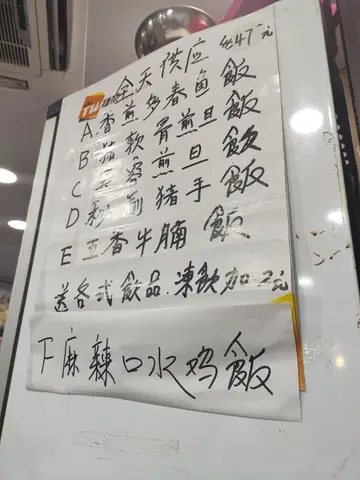 全天供应 47元
A香煎多春鱼飯
B猪軟骨煎旦飯
C 煎旦飯
D 秘制猪手飯
E 五香牛腩飯
送各式飲品.凍飲加2元
F麻辣口水鸡飯